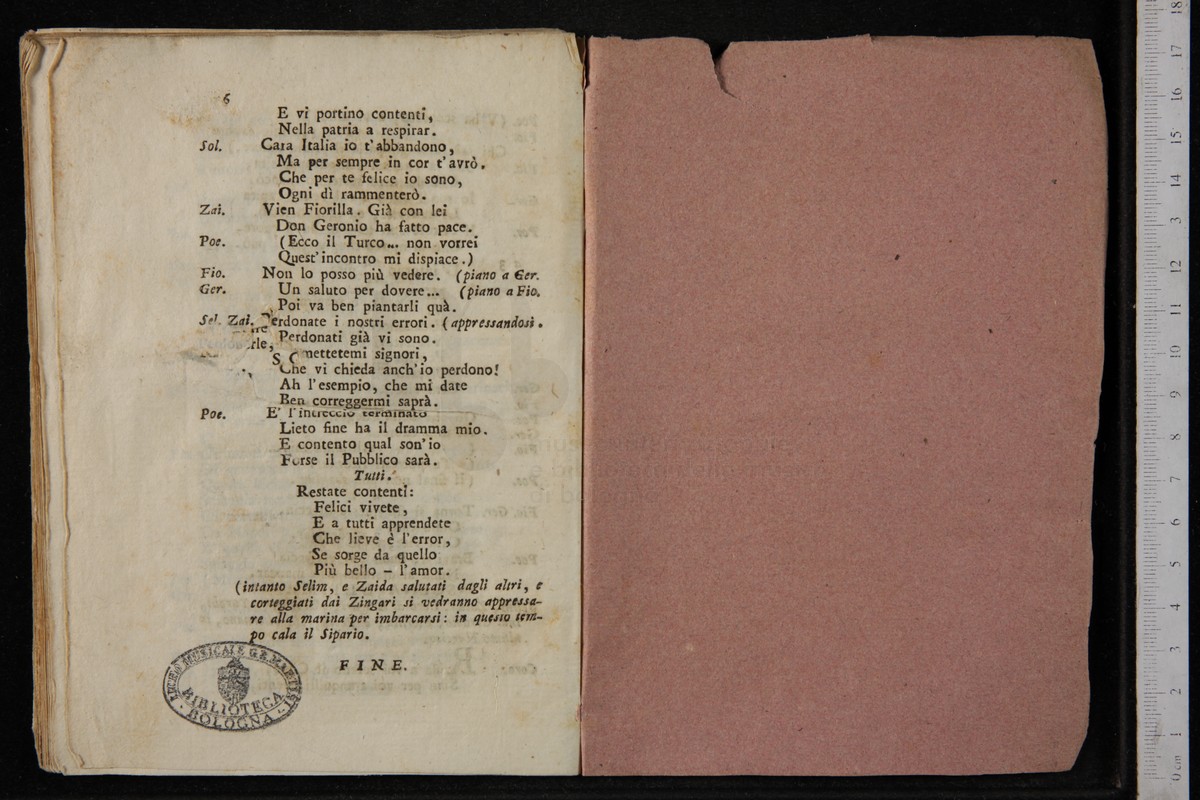 6
E vi portino contenti,
Nella patria a respirar.
Sol. Cara Italia io t'abbandono,
Ma per sempre in cor t'avrò.
Che per te felice io sono,
Ogni dì rammenterò.
Zai. Vien Fiorilla. Già con lei
Don Geronio ha fatto pace.
Poe. (Ecco il Turco... non vorrei
Quest'incontro mi dispiace.)
Fio. Non lo posso più vedere. (piano a Ger.
Ger. Un saluto per dovere... (piano a Fio.
Poi va ben piantarli quà.
Sel. Zai. Perdonate i nostri errori. (appressandosi.
Perdonati già vi sono.
mettetemi signori,
Che vi chieda anch'io perdono!
Ah l'esempio, che mi date
Ben correggermi saprà.
Poe. E' l'intreccio terminato
Lieto fine ha il dramma mio.
E contento qual son'io
Forse il Pubblico sarà.
Tutti.
Restate contenti:
Felici vivete,
E a tutti apprendete
Che lieve è l'error,
Se sorge da quello
Più bello - l'amor.
(intanto Selim, e Zaida salutati dagli altri, e
corteggiati dai Zingari si vedranno appressa-
re alla marina per imbarcarsi: in questo tem-
po cala il Sipario.
FINE.
LICEO MUSICALE G.B. MARTINI
BIBLIOTECA
BOLOGNA
0 cm 1 2 3 4 5 6 7 8 9 10 11 12 13 14 15 16 17 18